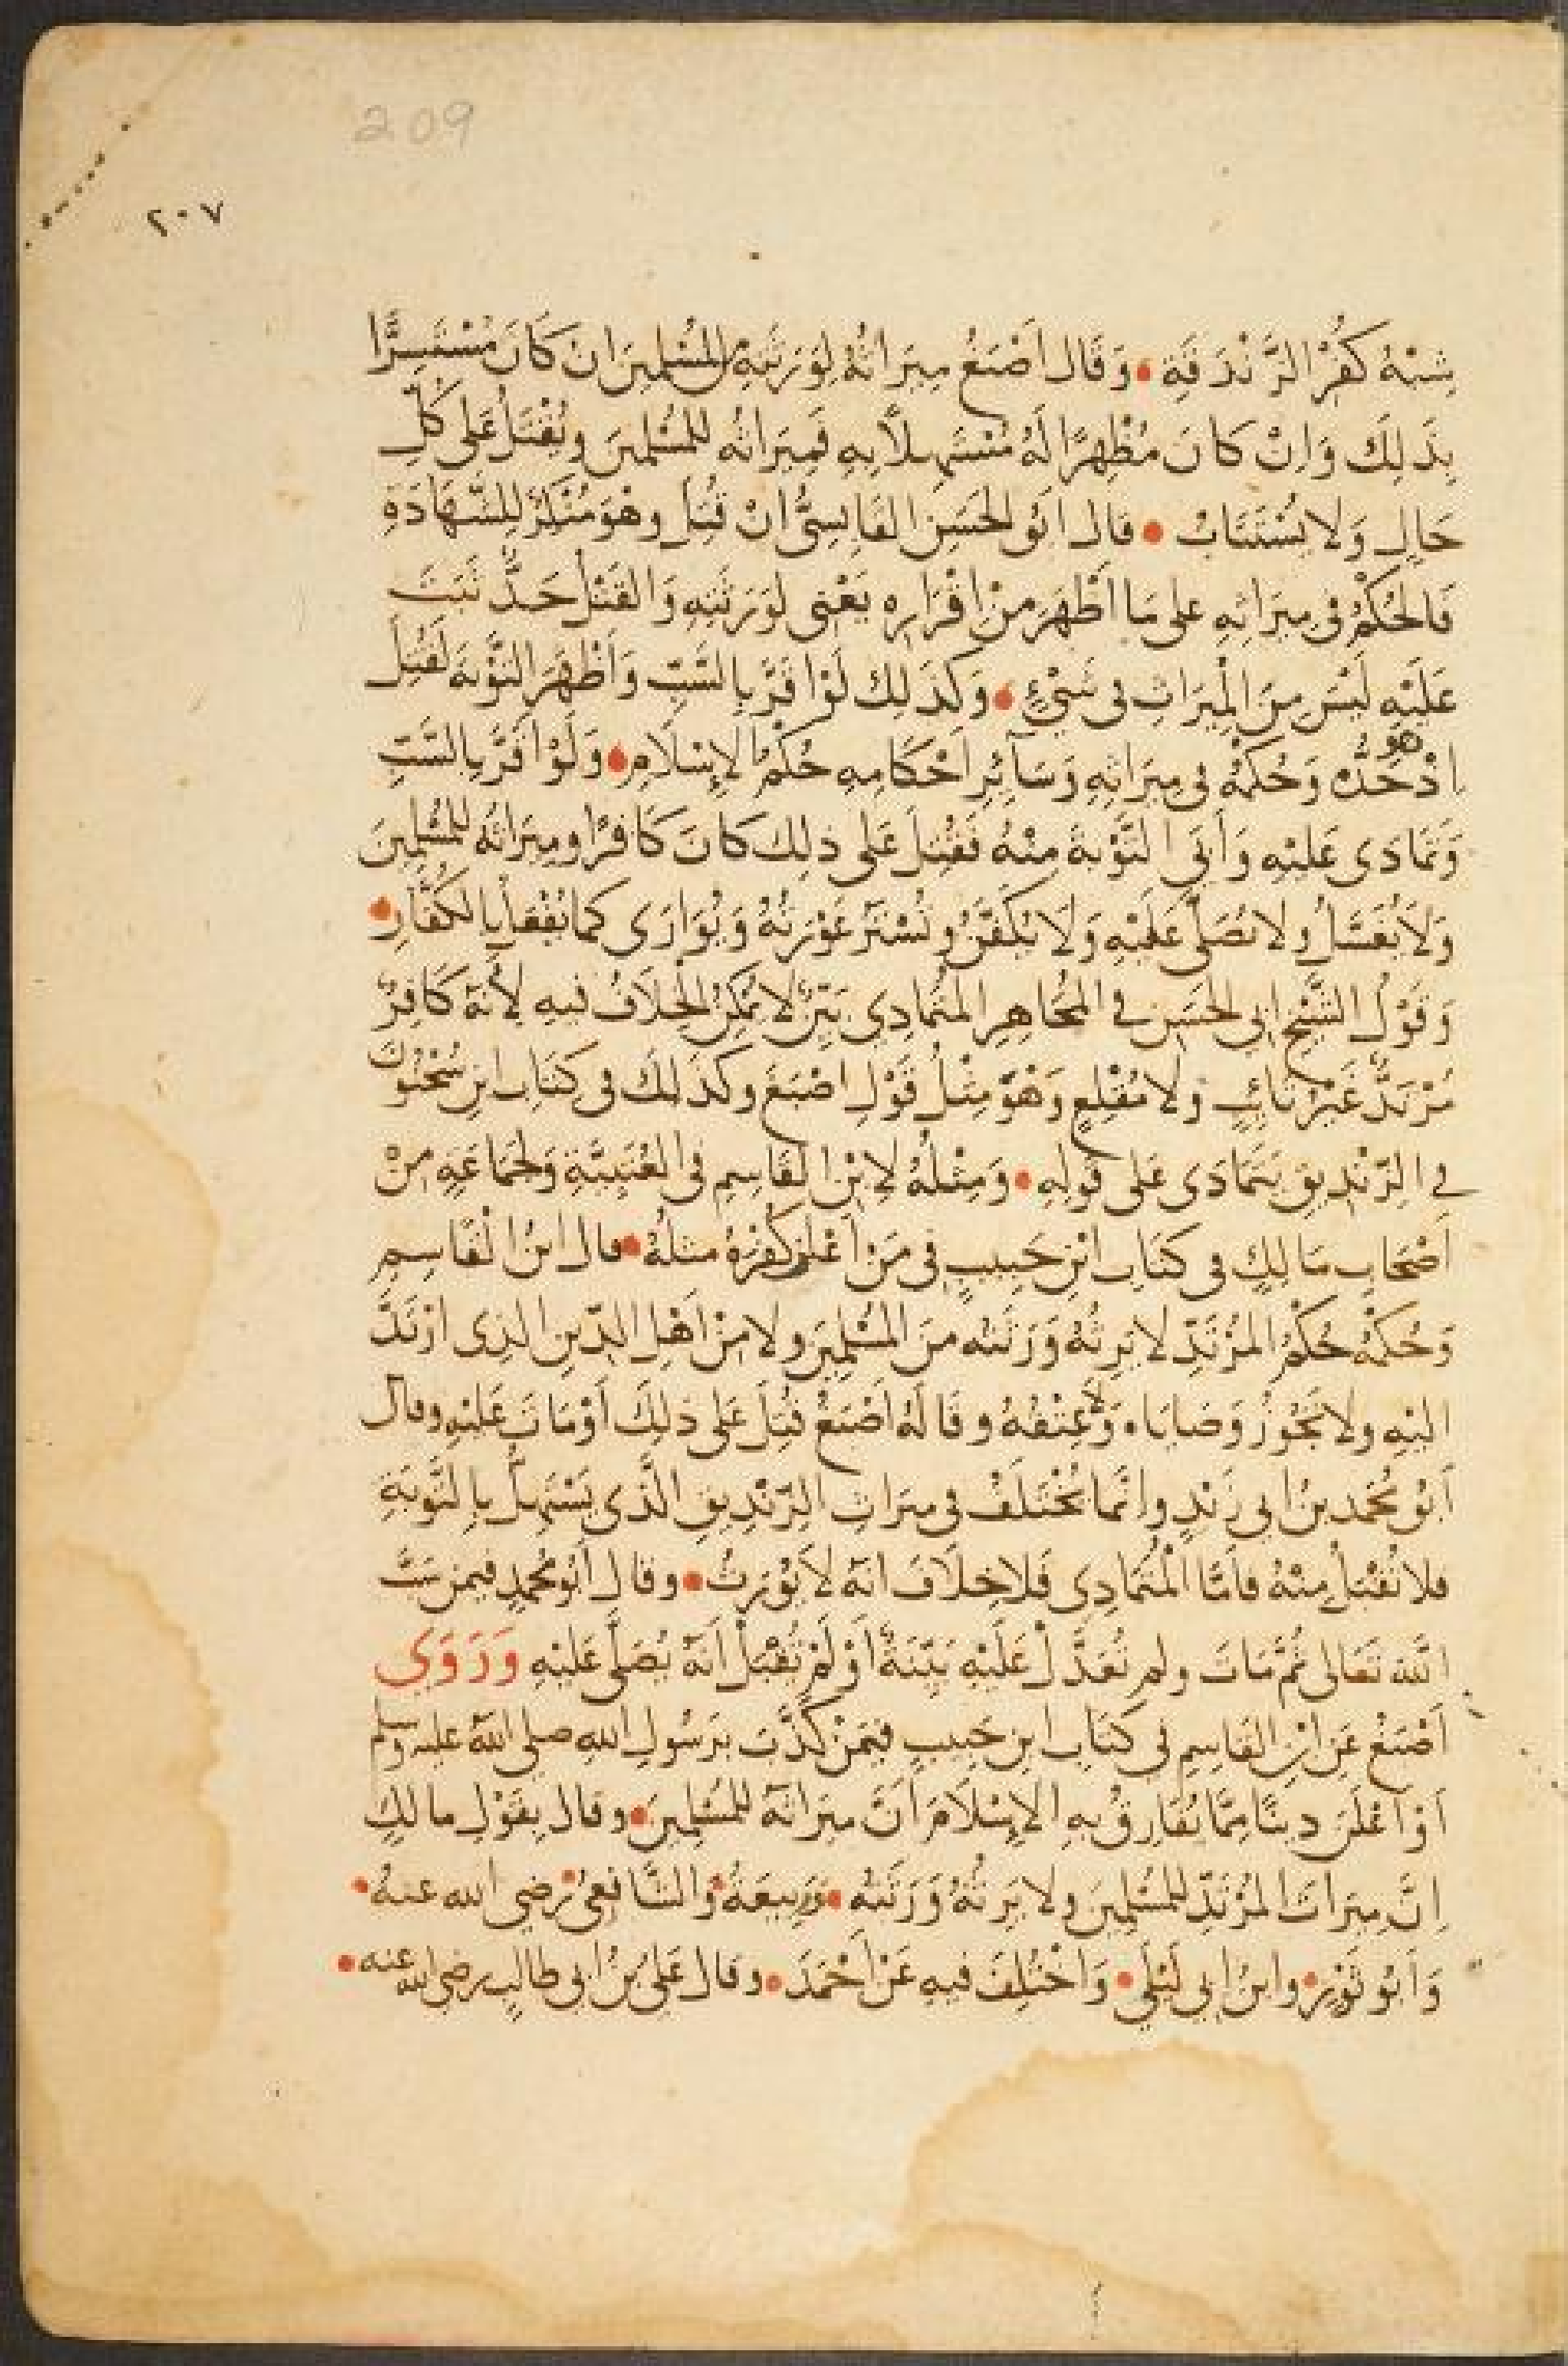 209
٢٠٧
شِبْهُ كُفْرِ الزَّنْدَقَةِ • وَقَالَ اَصْبَغُ مِيرَاثُهُ لِوَرَثَتِهِ مِنَ المُسْلِمِينَ اِنْ كَانَ مُسْتَسِرًّا
بِذَلِكَ وَاِنْ كَانَ مُظْهِرًا لَهُ مُسْتَهِلًّا بِهِ فَمِيرَاثُه لِلمُسْلِمِينَ ويُقْتَلُ عَلَى كُلِّ
حَالٍ وَلَا يُسْتَتَابُ • قَالَ اَبُو الحَسَنِ القَابِسِيُّ اِنْ قُتِلَ وهْوَ مُنْكِرٌ لِلشَّهَادَةِ
فَالحُكْمُ فِى مِيرَاثِهِ عَلى مَا اَظْهَرَ مِنْ اِقْرَارِهِ يَعْنِى لِوَرَثَتِهِ وَالقَتْلُ حَدٌّ ثَبَتَ
عَلَيْهِ لَيْسَ مِنَ المِيرَاثِ فِى شَيْءٍ • وَكَذَلِكَ لَوْ اَقَرَّ بِالسَّبِّ وَاَظْهَرَ التَّوْبَةَ لَقُتِلَ
اِذْ هُوَ حَدُّه وَحُكْمُهُ فِى مِيرَاثِهِ وَسَآئِرِ اَحْكَامِهِ حُكْمُ الاِسْلَامِ • وَلَوْ اَقَرَّ بِالسَّبِّ
وَتَمَادَى عَلَيْهِ وَاَبَى التَّوْبَةَ مِنْهُ فَقُتِلَ عَلَى ذَلِكَ كَانَ كَافِرًا ومِيرَاثُه لِلمُسْلِمِينَ
وَلَا يُغَسَّلُ ولا يُصَلَّى عَلَيْهِ وَلَا يُكَفَّنُ وتُسْتَرُ عَوْرَتُهُ وَيُوَارَى كما يُفْعَلُ بِالكُفَّارِ •
وَقَوْلُ الشَّيْخِ اَبِى الحَسَنِ فِي المُجَاهِرِ المُتَمَادِي بَيِّنٌ لَا يُمْكِنُ الخِلَافُ فيهِ لِاَنَّهُ كَافِرٌ
مُرْتَدٌّ غَيْرُ تَائِبٍ ولا مُقْلِعٍ وَهْوَ مِثْلُ قَوْلِ اَصْبَغَ وكَذَلِكَ فى كِتَابِ ابنِ سُحْنُونَ
فِي الزِّنْدِيقِ يَتَمَادَى عَلَى قَوْلِهِ • وَمِثْلُهُ لِابْنِ القَاسِمِ فى العُتْبِيَّةِ وَلِجَمَاعَةٍ مِنْ
اَصْحَابِ مَالِكٍ فى كِتَابِ ابْنِ حَبِيبٍ فِى مَنْ اَعْلَنَ كُفْرَهُ مِثْلُهُ • قال ابنُ القَاسِمِ
وَحُكْمُهُ حُكْمُ المُرْتَدِّ لا يَرِثُهُ وَرَثَتُه مِنَ المُسْلِمِينَ ولا مِنْ اَهْلِ الدِّينِ الذِى ارْتَدَّ
اليْهِ ولا تَجُوزُ وَصَايَاهُ وَلَا عِتْقُهُ وقَالَهُ اَصْبَغُ قُتِلَ عَلَى ذَلِكَ اَوْ مَاتَ عَلَيْهِ وقال
اَبُو مُحَمد بنُ اَبِى زَيْدٍ وانَّمَا يُخْتَلَفُ فِى مِيرَاثِ الزِّنْدِيقِ الَّذِى يَسْتَهِلُّ بِالتَّوْبَةِ
فلا تُقْبَلُ مِنْهُ فاَمَّا المُتَمَادِى فَلَا خِلَافَ انَّهُ لَا يُورَثُ • وقال اَبُو مُحَمدٍ فيمَن سَبَّ
اللهَ تَعَالى ثُمَّ مَاتَ ولم تُعَدَّلْ عَلَيْهِ بَيِّنَةٌ اَوْ لَمْ تُقْبَلْ اَنَّهُ يُصَلَّى عَلَيْهِ وَرَوَى
اَصْبَغُ عَنِ ابْنِ القَاسِمِ فى كِتَابِ ابنِ حَبِيبٍ فِيمَنْ كَذَّبَ بِرَسُولِ اللهِ صلى الله عليه وسلم
اَوْ اَعْلَنَ دِينًا مِمَّا يُفَارِقُ بِهِ الاِسْلَامَ اَنَّ مِيرَاثَهُ لِلمُسْلِمِينَ • وقال بِقَوْلِ مالكٍ
اِنَّ مِيرَاثَ المُرْتَدِّ لِلمُسْلِمِينَ ولا يَرِثُهُ وَرَثَتُهُ • رَبِيعَةُ • وَالشَّافِعِىُّ رضى الله عنهُ •
وَاَبُو ثَوْرٍ • وابنُ اَبِي لَيْلَي • وَاخْتُلِفَ فيهِ عَنْ اَحْمَدَ • وقال عَلِىُّ بنُ اَبى طالبٍ رضى الله عنه •